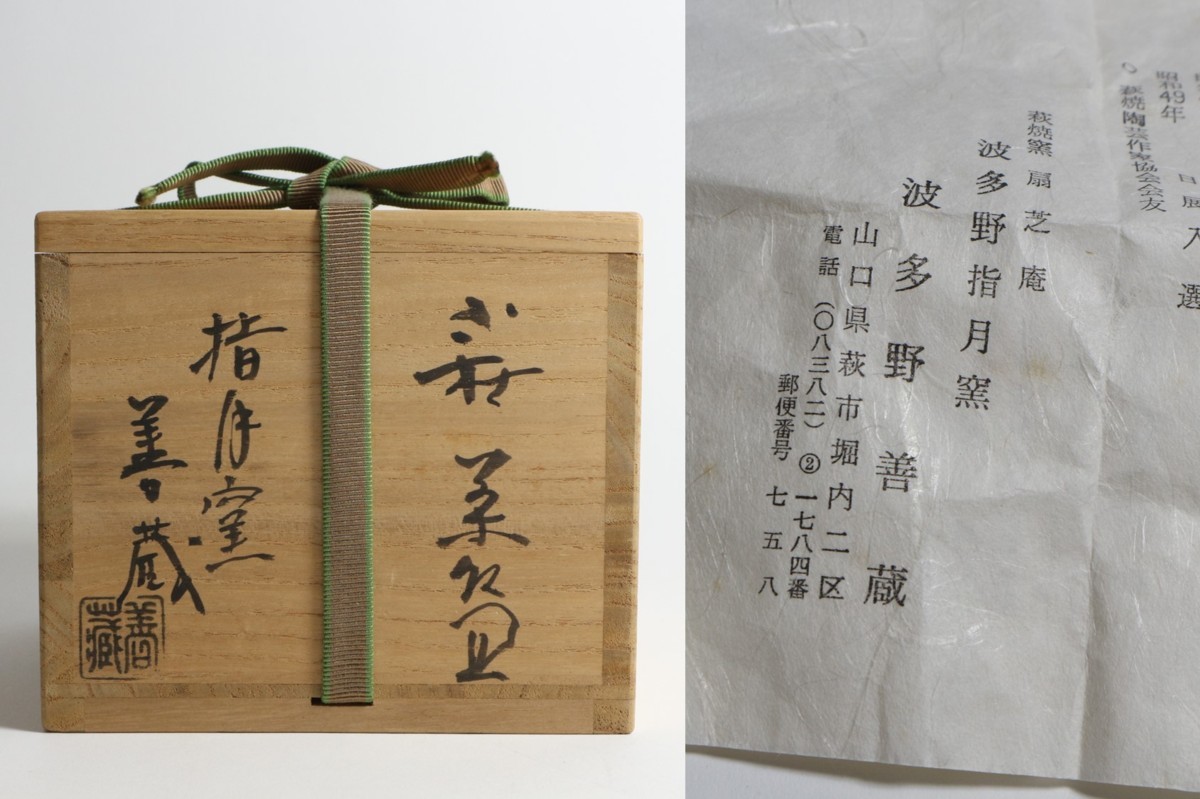 萩 茶盌
指月窯
善蔵
善蔵
昭和49年
日展
入選
萩焼陶芸作家協会会友
萩焼窯 扇芝庵
波多野指月窯
波多野善蔵
山口県萩市堀内二区
電話(〇八三八二)②一七八四番
郵便番号 七五八